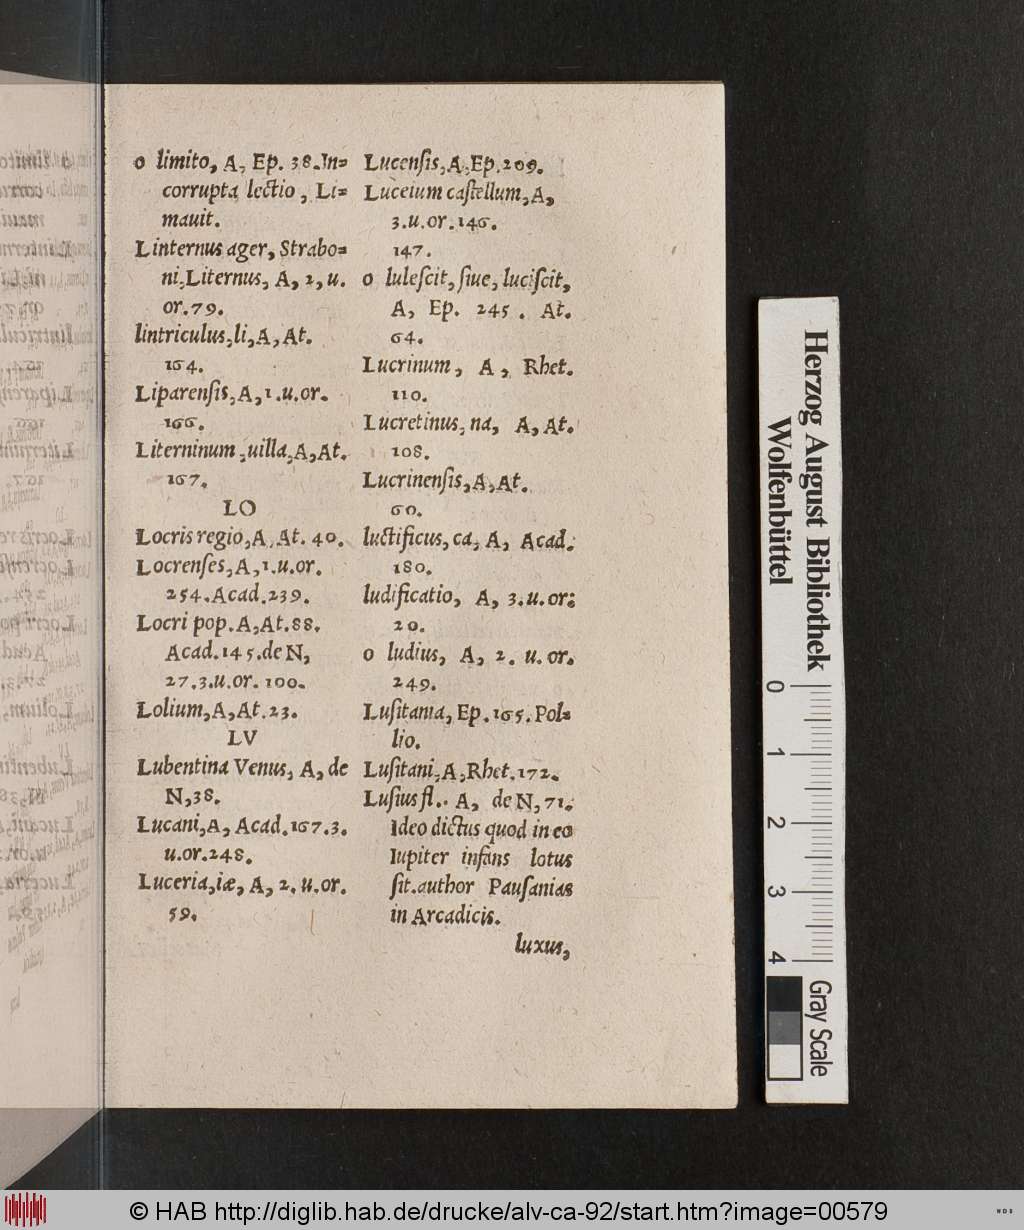 o limito, A, Ep. 38. In=
corrupta lectio, Li=
mauit.
Linternus ager, Strabo=
ni, Liternus, A, 2, u.
or. 79.
lintriculus, li, A, At.
164.
Liparenſis, A, 1. u. or.
166.
Literninum, uilla, A, At.
167.
LO
Locris regio, A, At. 40.
Locrenſes, A, 1. u. or.
254. Acad. 239.
Locri pop. A, At. 88.
Acad. 145. de N,
27. 3. u. or. 100.
Lolium, A, At. 23.
LV
Lubentina Venus, A, de
N, 38.
Lucani, A, Acad. 167. 3.
u. or. 248.
Luceria, iæ, A, 2. u. or.
59.
Lucenſis, A, Ep. 209.
Luceium caſtellum, A,
3. u. or. 146.
147.
o luleſcit, ſiue, luciſcit,
A, Ep. 245. At.
64.
Lucrinum, A, Rhet.
110.
Lucretinus, na, A, At.
108.
Lucrinenſis, A, At.
60.
luctificus, ca, A, Acad.
180.
ludificatio, A, 3. u. or:
20.
o ludius, A, 2. u. or.
249.
Luſitania, Ep. 165. Pol=
lio.
Luſitani, A, Rhet. 172.
Luſius fl.. A, de N, 71.
Ideo dictus quod in eo
Iupiter infans lotus
ſit. author Pauſanias
in Arcadicis.
luxus,
Herzog August Bibliothek
Wolfenbüttel
0 1 2 3 4
Gray Scale
© HAB http://diglib.hab.de/drucke/alv-ca-92/start.htm?image=00579
WDB